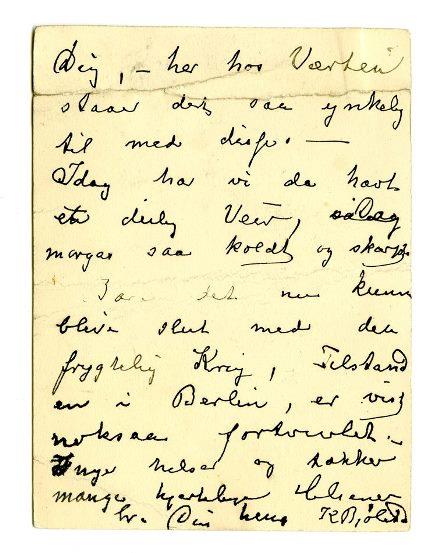 Dig, – her hos Værten
staar det saa ynkelig
til med disse. —
Idag har vi da havt
et deilig Veir,
morges saa koldt og skarpt
Bare det nu kunne
blive slut med den
frygtelig Krig, Tilstand
en i Berlin, er vist
noksaa fortvivlet –
Inge helser og takker
mange hjertelige Hilsener
fra Din